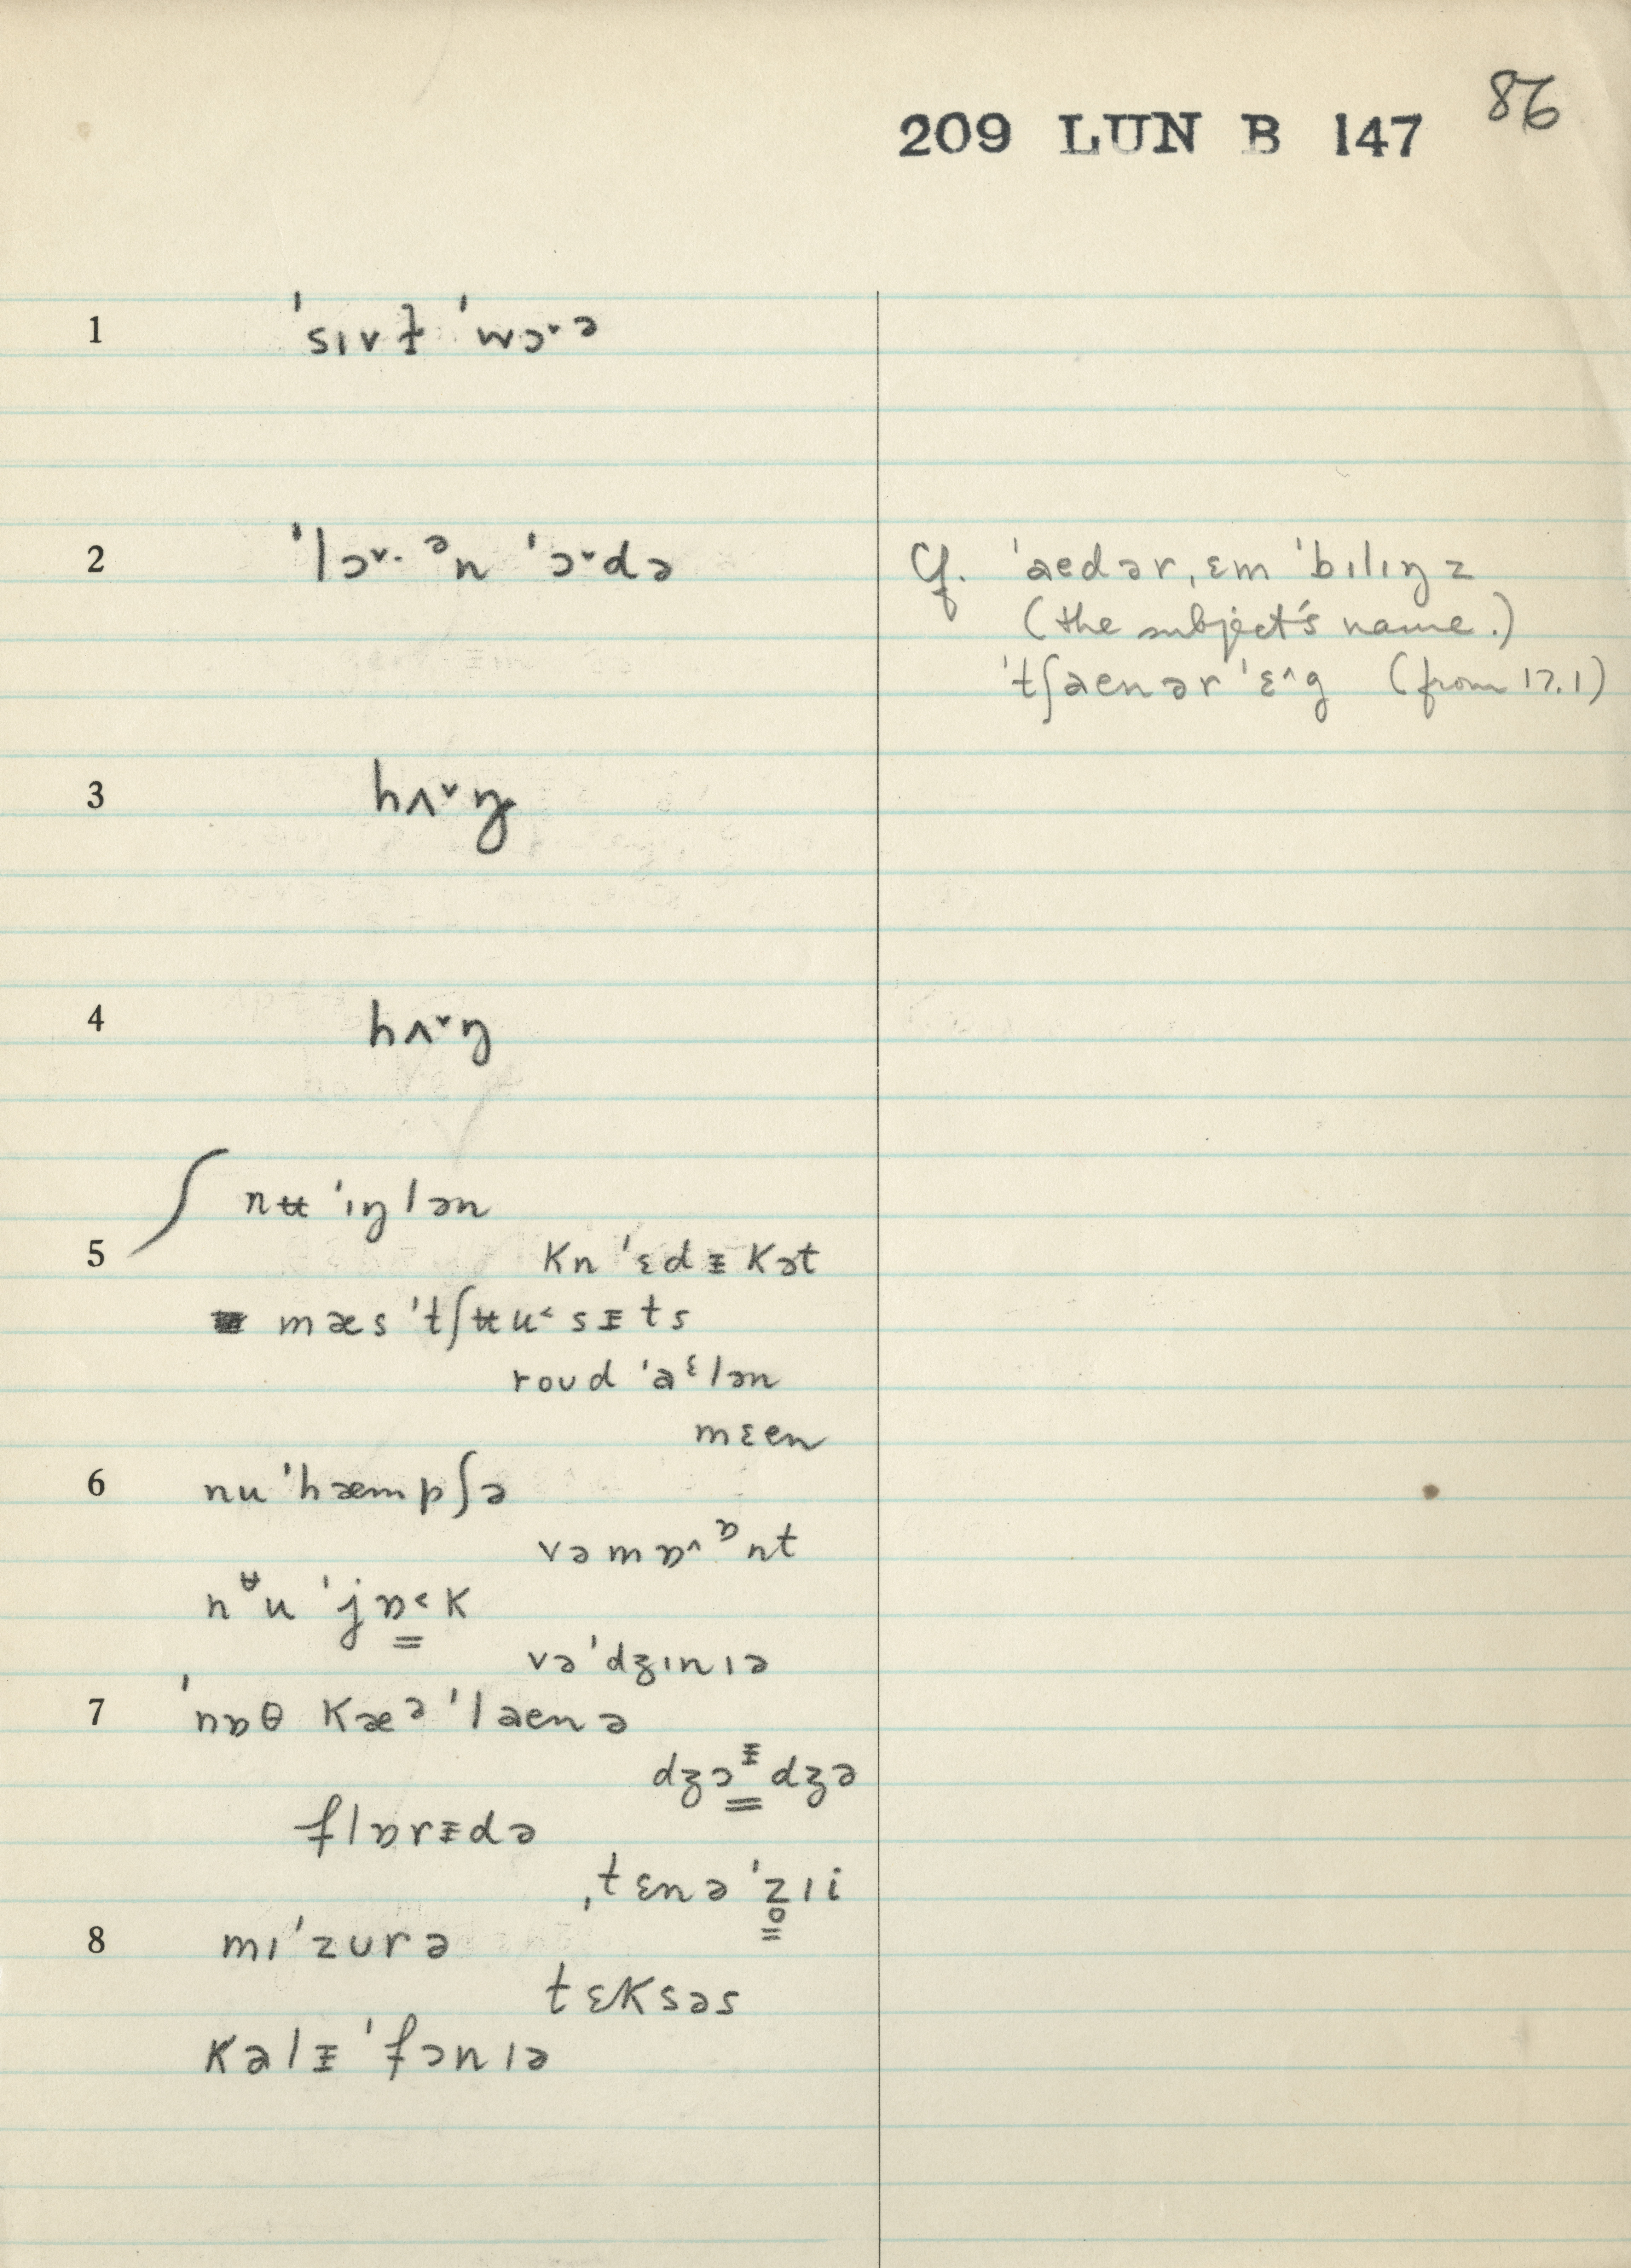 86
209 LUN B 147
1 ˈsɪvɫ ˈwɔ˅ə
2 ˈlɔ˅· ᵊn ˈɔ˅də
Cf. ˈaedər, ɛm ˈbɪlɪŋz
(the subject's name.)
ˈtʃaenər ˈɛ˄g (from 17.1)
3 hʌ˅ŋ
4 hʌ˅ŋ
nʉ ˈɪŋlən
5 kn ˈɛdᵻkət
mæs ˈtʃʉu˂sᵻts
roʊd ˈaᵋlən
mɛen
6 nu ˈhæmpʃə
vəmɒ˄ᶛnt
nᶶu ˈjɒ̳˂k
vəˈdʒɪnɪə
7 ˈnɒθ kæᵊ ˈlaenə
dʒɔ̳ᵻdʒə
flɒrᵻdə
ˌtɛnə ˈz̥ɪi
8 mɪˈzʊrə
tɛksəs
kalᵻ ˈfɔnɪə